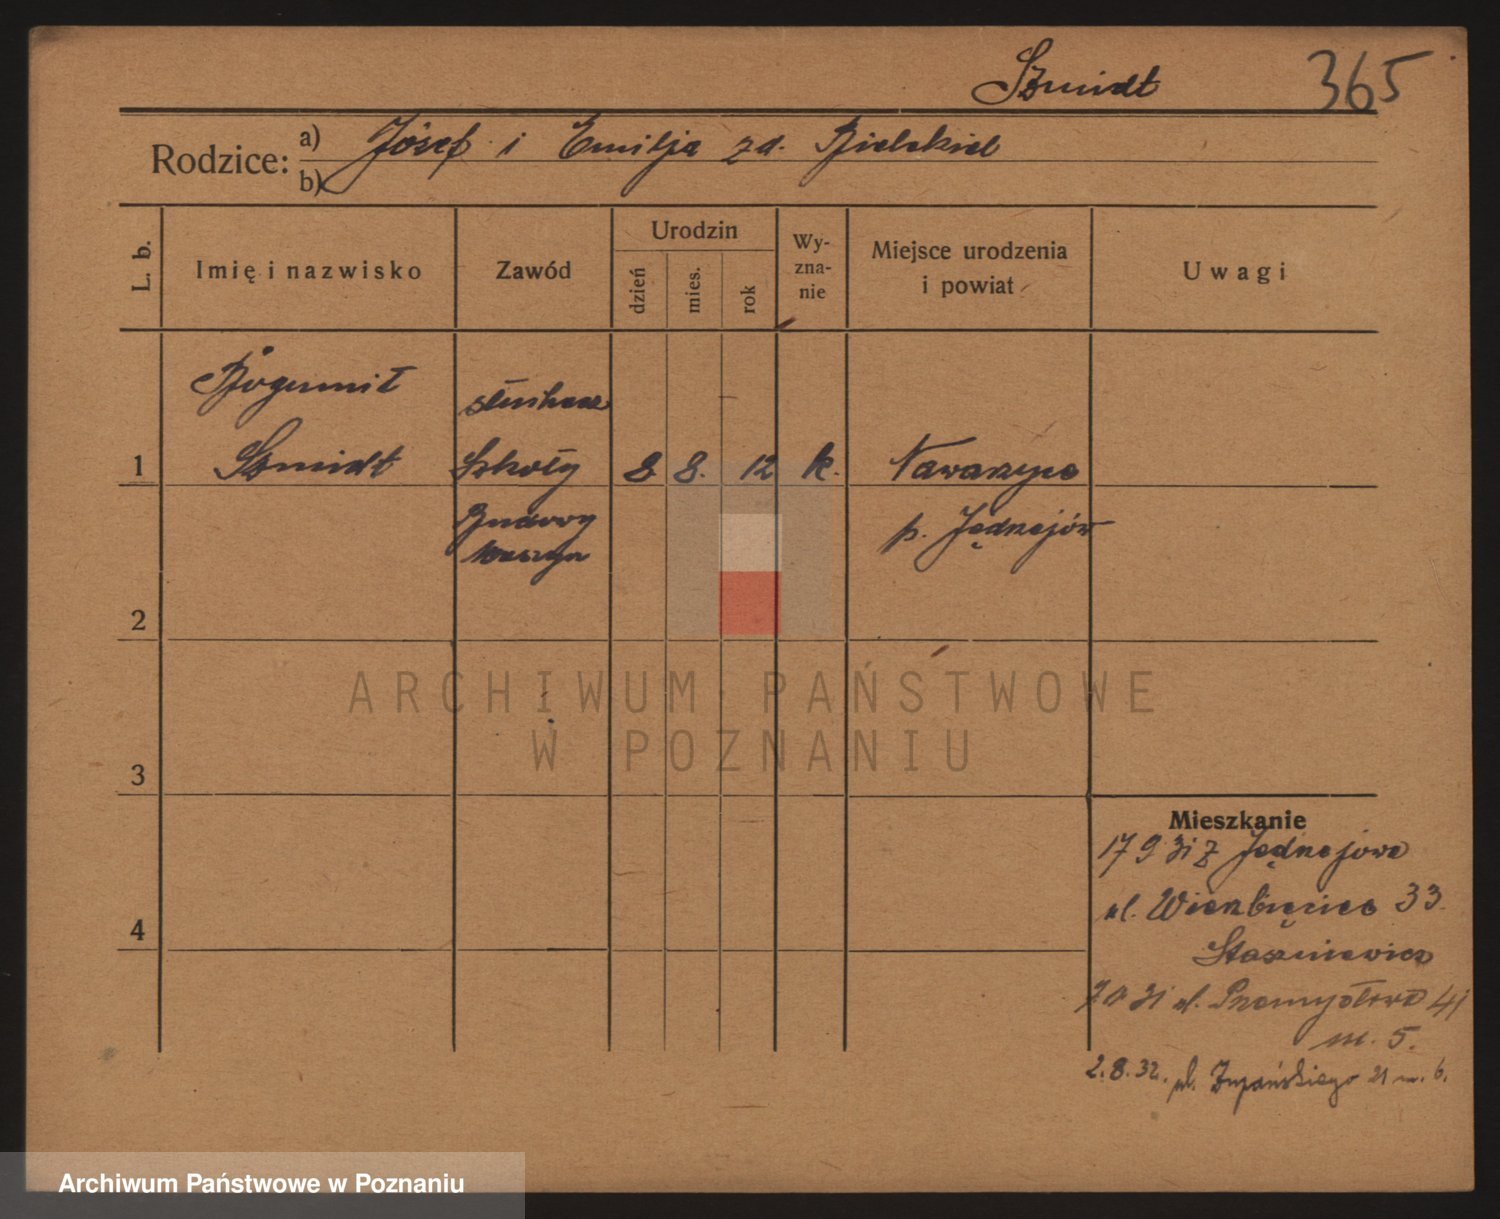 Szmidt 365
Rodzice: a) Józef i Emilja zd. Bielskich
b)
L. b. Imię i nazwisko Zawód Urodzin Wy-zna-nie Miejsce urodzenia i powiat Uwagi
dzień mies. rok
Bogumił słuchacz
1 Szmidt Szkoły 8 8. 12 k. Nawarzyce
Budowy p. Jędrzejów
Maszyn
2
ARCHIWUM PAŃSTWOWE
W POZNANIU
3
Mieszkanie
17 9 31 z Jędrzejowa
4
ul. Wierzbięcice 33
Staszniewicz
31 ul. Przemysłowa 41
m. 5.
2.8.32. ul. Żupańskiego 21 m. 6.
Archiwum Państwowe w Poznaniu